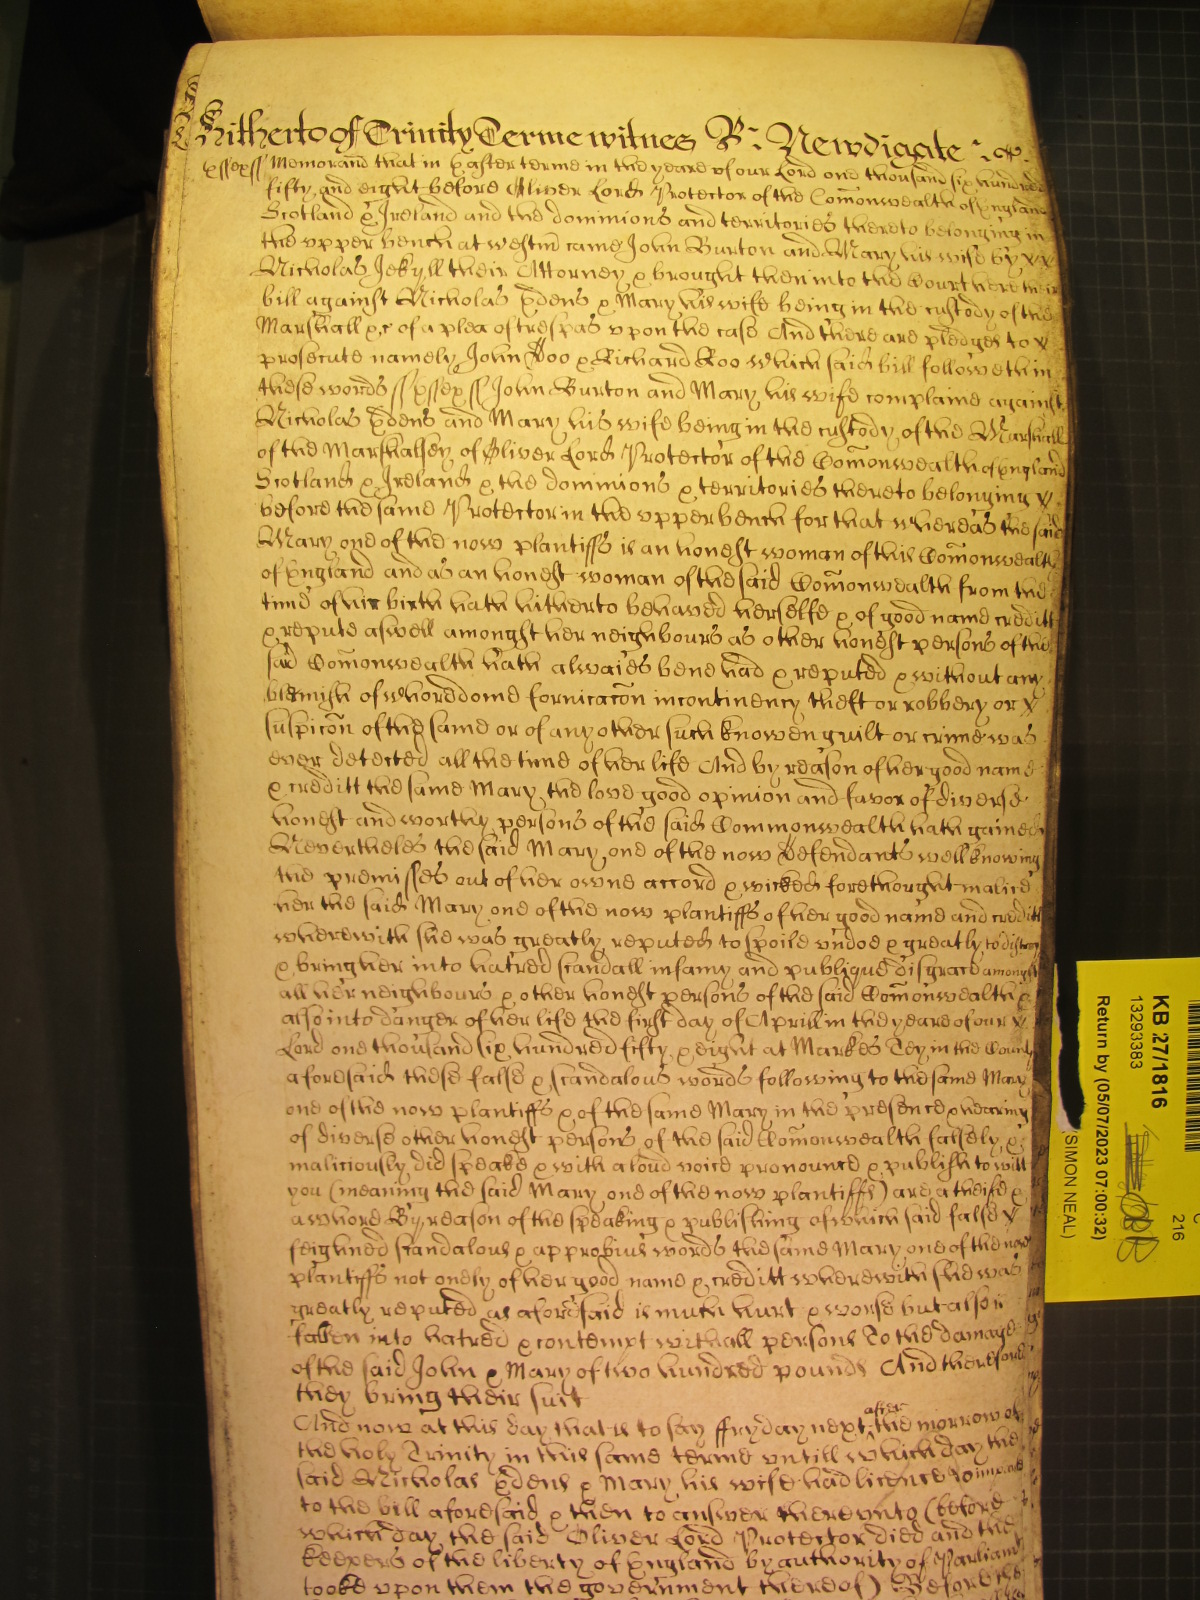 Hitherto of Trinity Terme witnes R: Newdigate
Essex ss Memorand that in Easter terme in the yeare of our Lord one thousand six hundred
fifty and eight before Oliver Lord Protector of the Com̄onwealth of England
Scotland & Ireland and the dominions and territories thereto belonging in
the upper bench at westm̄ came John Burton and Mary his wife by
Nicholas Jekyll their Attorney & brought then into the Court here their
bill against Nicholas Edens & Mary his wife being in the custody of the
Marshall &c of a plea of trespas upon the case And there are pledges to
prosecute namely John Doo & Richard Roo which said bill followeth in
these words ss Essex ss John Burton and Mary his wife complaine against
Nicholas Edens and Mary his wife being in the custody of the Marshall
of the Marshalsey of Oliver Lord Protector of the Com̄onwealth of England
Scotland & Ireland & the dominions & territories thereto belonging
before the same Protector in the upper bench for that whereas the said
Mary one of the now plantiffs is an honest woman of this Com̄onwealth
of England and as an honest woman of the said Com̄onwealth from the
time of hir birth hath hitherto behaved herselfe & of good name creditt
& repute aswell amongst her neighbours as other honest persons of the
said Com̄onwealth hath alwaies bene had & reputed & without any
blemish of whoredome fornicac̄on incontinency theft or robbery or
suspic̄on of the same or of any other such knowen guilt or crime was
ever detected all the time of her life And by reason of her good name
& creditt the same Mary the love good opinion and favor of diverse
honest and worthy persons of the said Commonwealth hath gained
Nevertheles the said Mary one of the now defendants well knowing
the premisses out of her owne accord & wicked forethought malice
her the said Mary one of the now plantiffs of her good name and creditt
wherewith she was greatly reputed to spoile undoe & greatly to
& bring her into hatred scandall infamy and publique disgrace amongst
all her neighbours & other honest persons of the said Com̄onwealth &
also into danger of her life the first day of Aprill in the yeare of our
Lord one thousand six hundred fifty & eight at Markes Tey in the County
aforesaid these false & scandalous words following to the same Mary
one of the now plantiffs & of the same Mary in the presence & hearing
of diverse other honest persons of the said Com̄onwealth falsely &
maliciously did speake & with a loud voice pronounce & publish to witt
you (meaning the said Mary one of the now plantiffs) are a theife &
a whore By reason of the speaking & publishing of which said false
feighned scandalous & approbius words the same Mary one of the now
plantiffs not onely of her good name & creditt wherewith she was
greatly reputed as aforesaid is much hurt & worse but also is
fallen into hatred & contempt with all persons To the damage
of the said John & Mary of two hundred pounds And therefore
they bring their suit
And now at this day that is to say ffryday next after the morrow of
the holy Trinity in this same terme untill which day the
said Nicholas Edens & Mary his wife had licence to
to the bill aforesaid & then to answer thereunto (before
which day the said Oliver Lord Protector died and the
keepers of the liberty of England by authority of Parliam̄t
tooke upon them the government thereof) Before the
KB 27/1816
13293383
Return by (05/07/2023 07:00:32)
(SIMON NEAL)
216